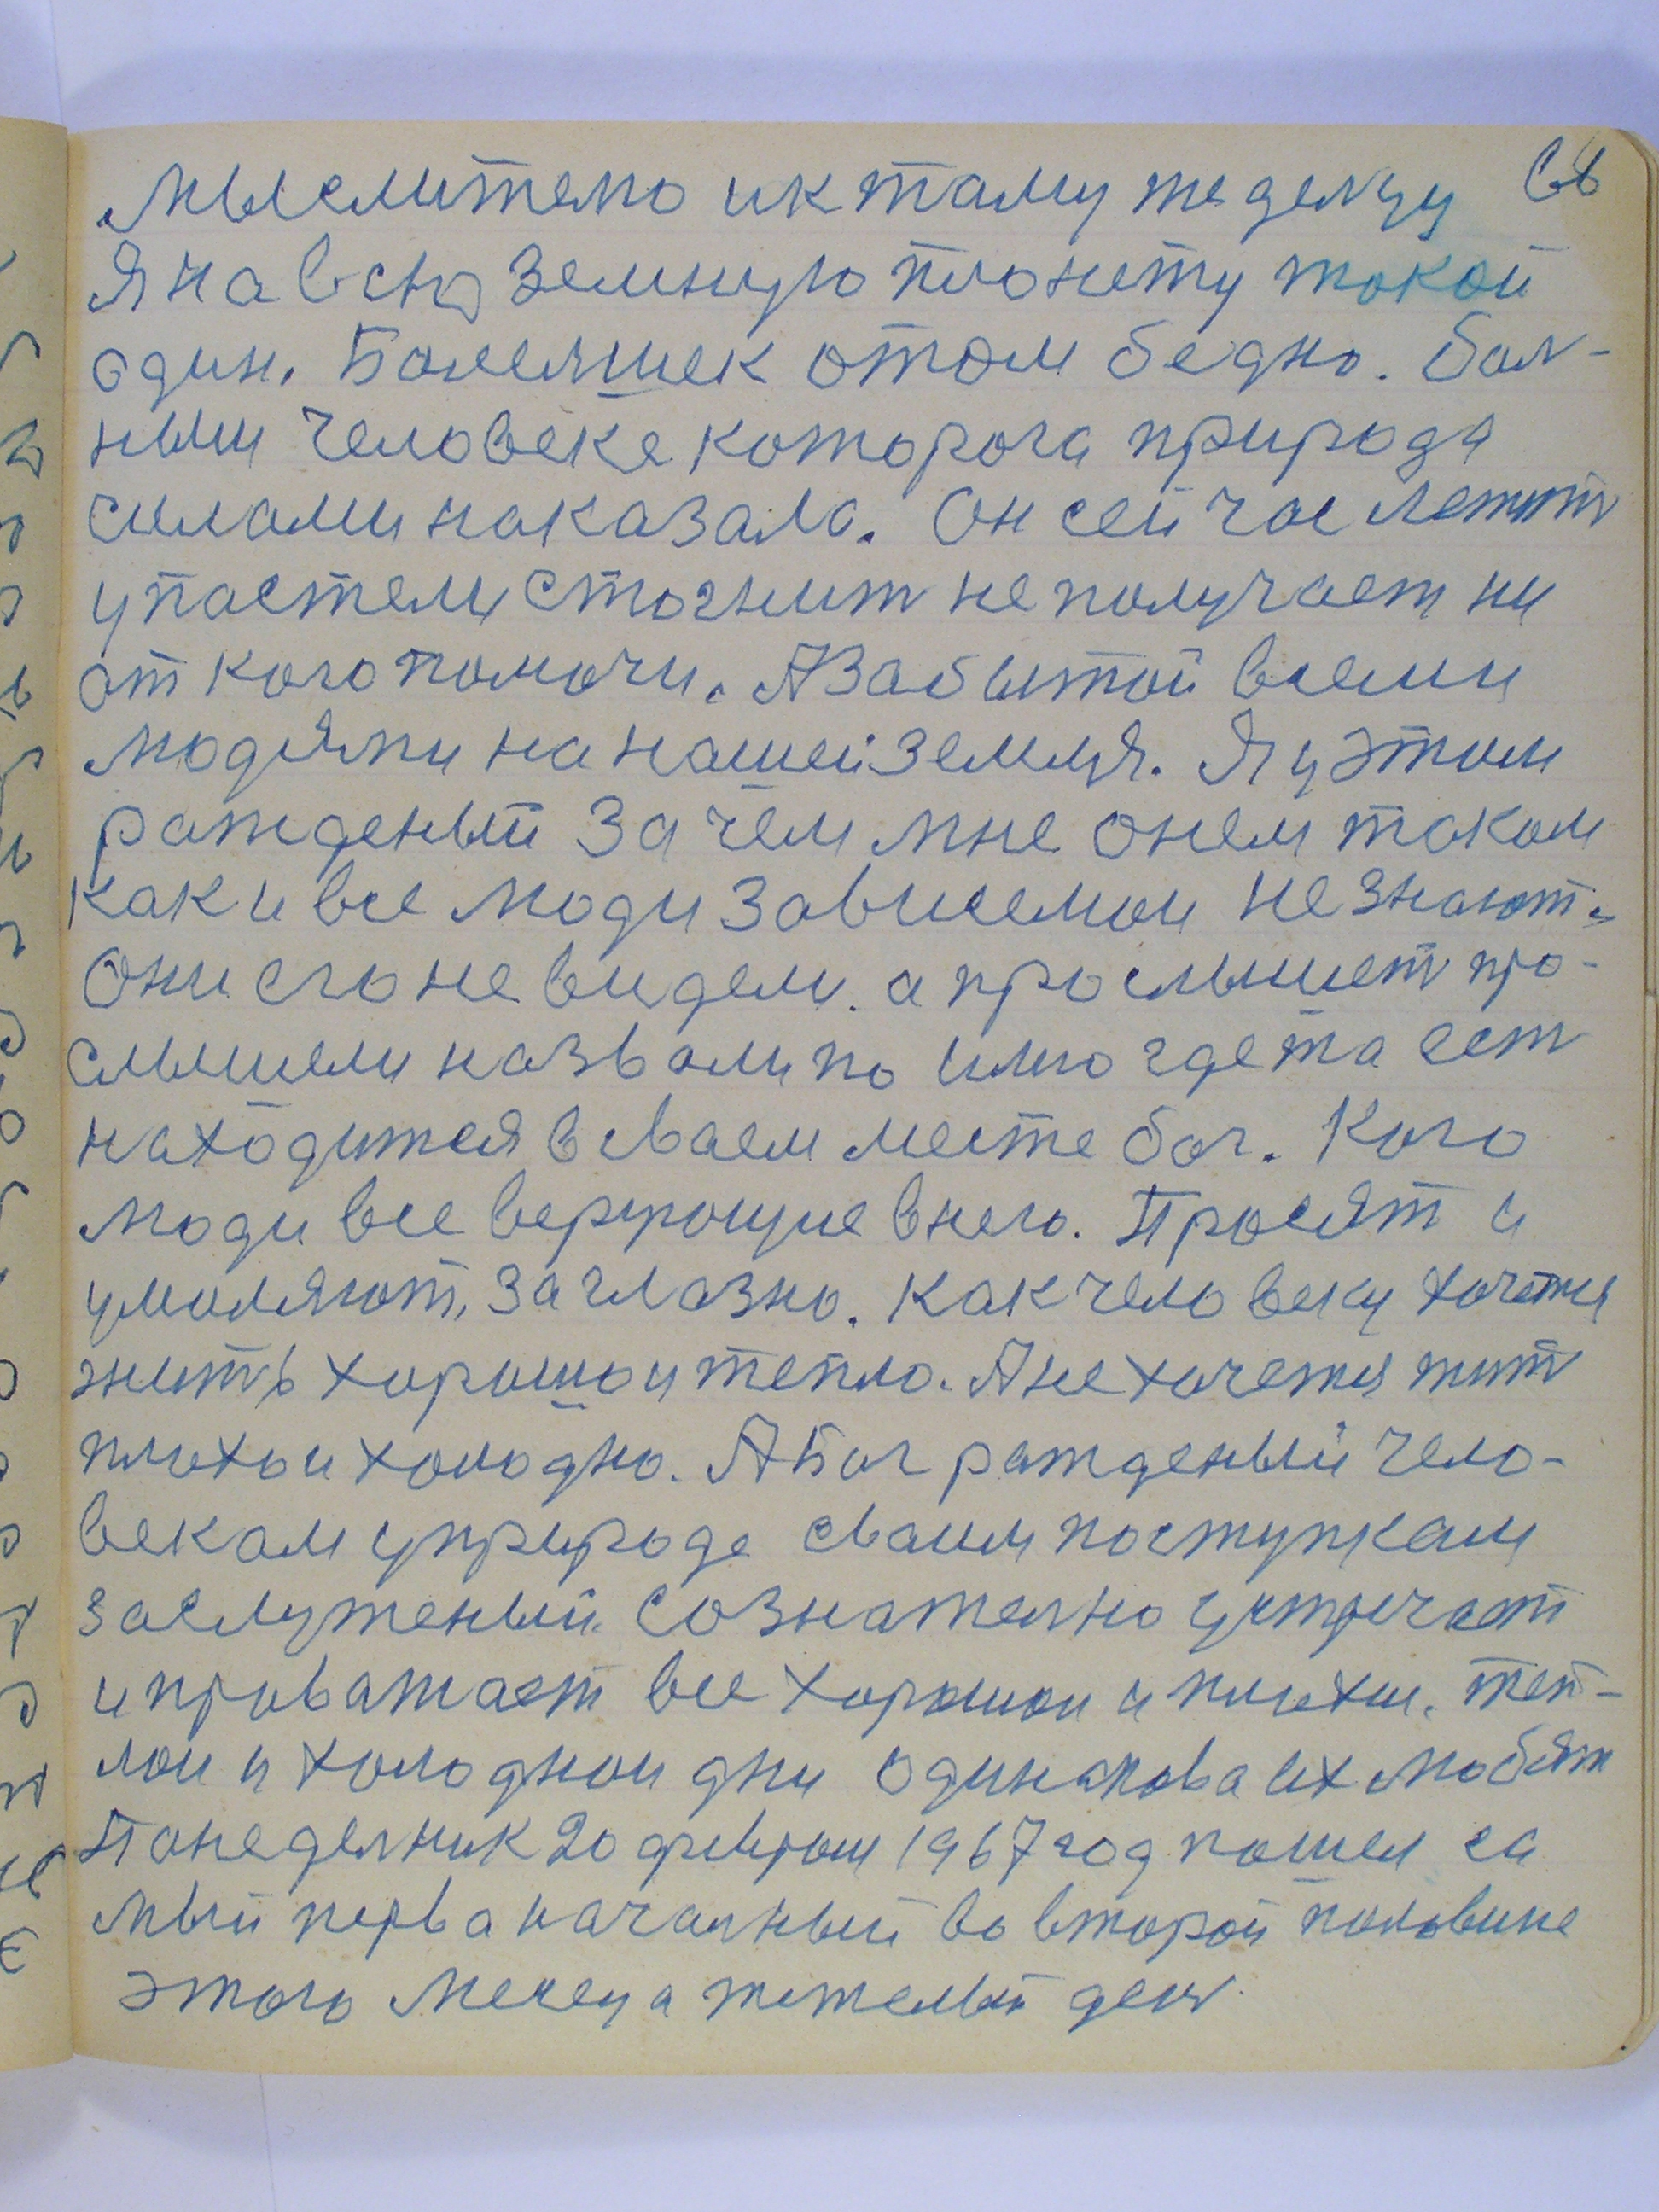 мыслителю и к таму же делцу
Я на всю земную плонету такой
один. Болея́шек о том бедно. бол-
ным человеке которога природа
силами наказала. Он сейчас лежит
у пастели стогнит не получает ни
от кого помочи. А забытой всеми
людями на нашей земля. Я у этом
ражденый За чем мне о нем таком
как и все люди зависемом не знают.
Они его не видели. а прослышет про-
слышели назвали по имю где та ест
находится в сваем месте бог. Кого
люди все верующие в него. Просят и
умоляют, за глазно. Как человеку хочется
жить хорошо и тепло. А не хочется жит
плохо и холодно. А Бог ражденый чело-
векам у природе сваим поступкам
заслуженый. Сознателно устречает
и проважает все хорошои и плохои. теп-
лои и холоднои дни одинакова их любят
Понеделник 20 феврали 1967 год пошел са
мый перваначалный во второй половине
этого месеца тяжелый ден